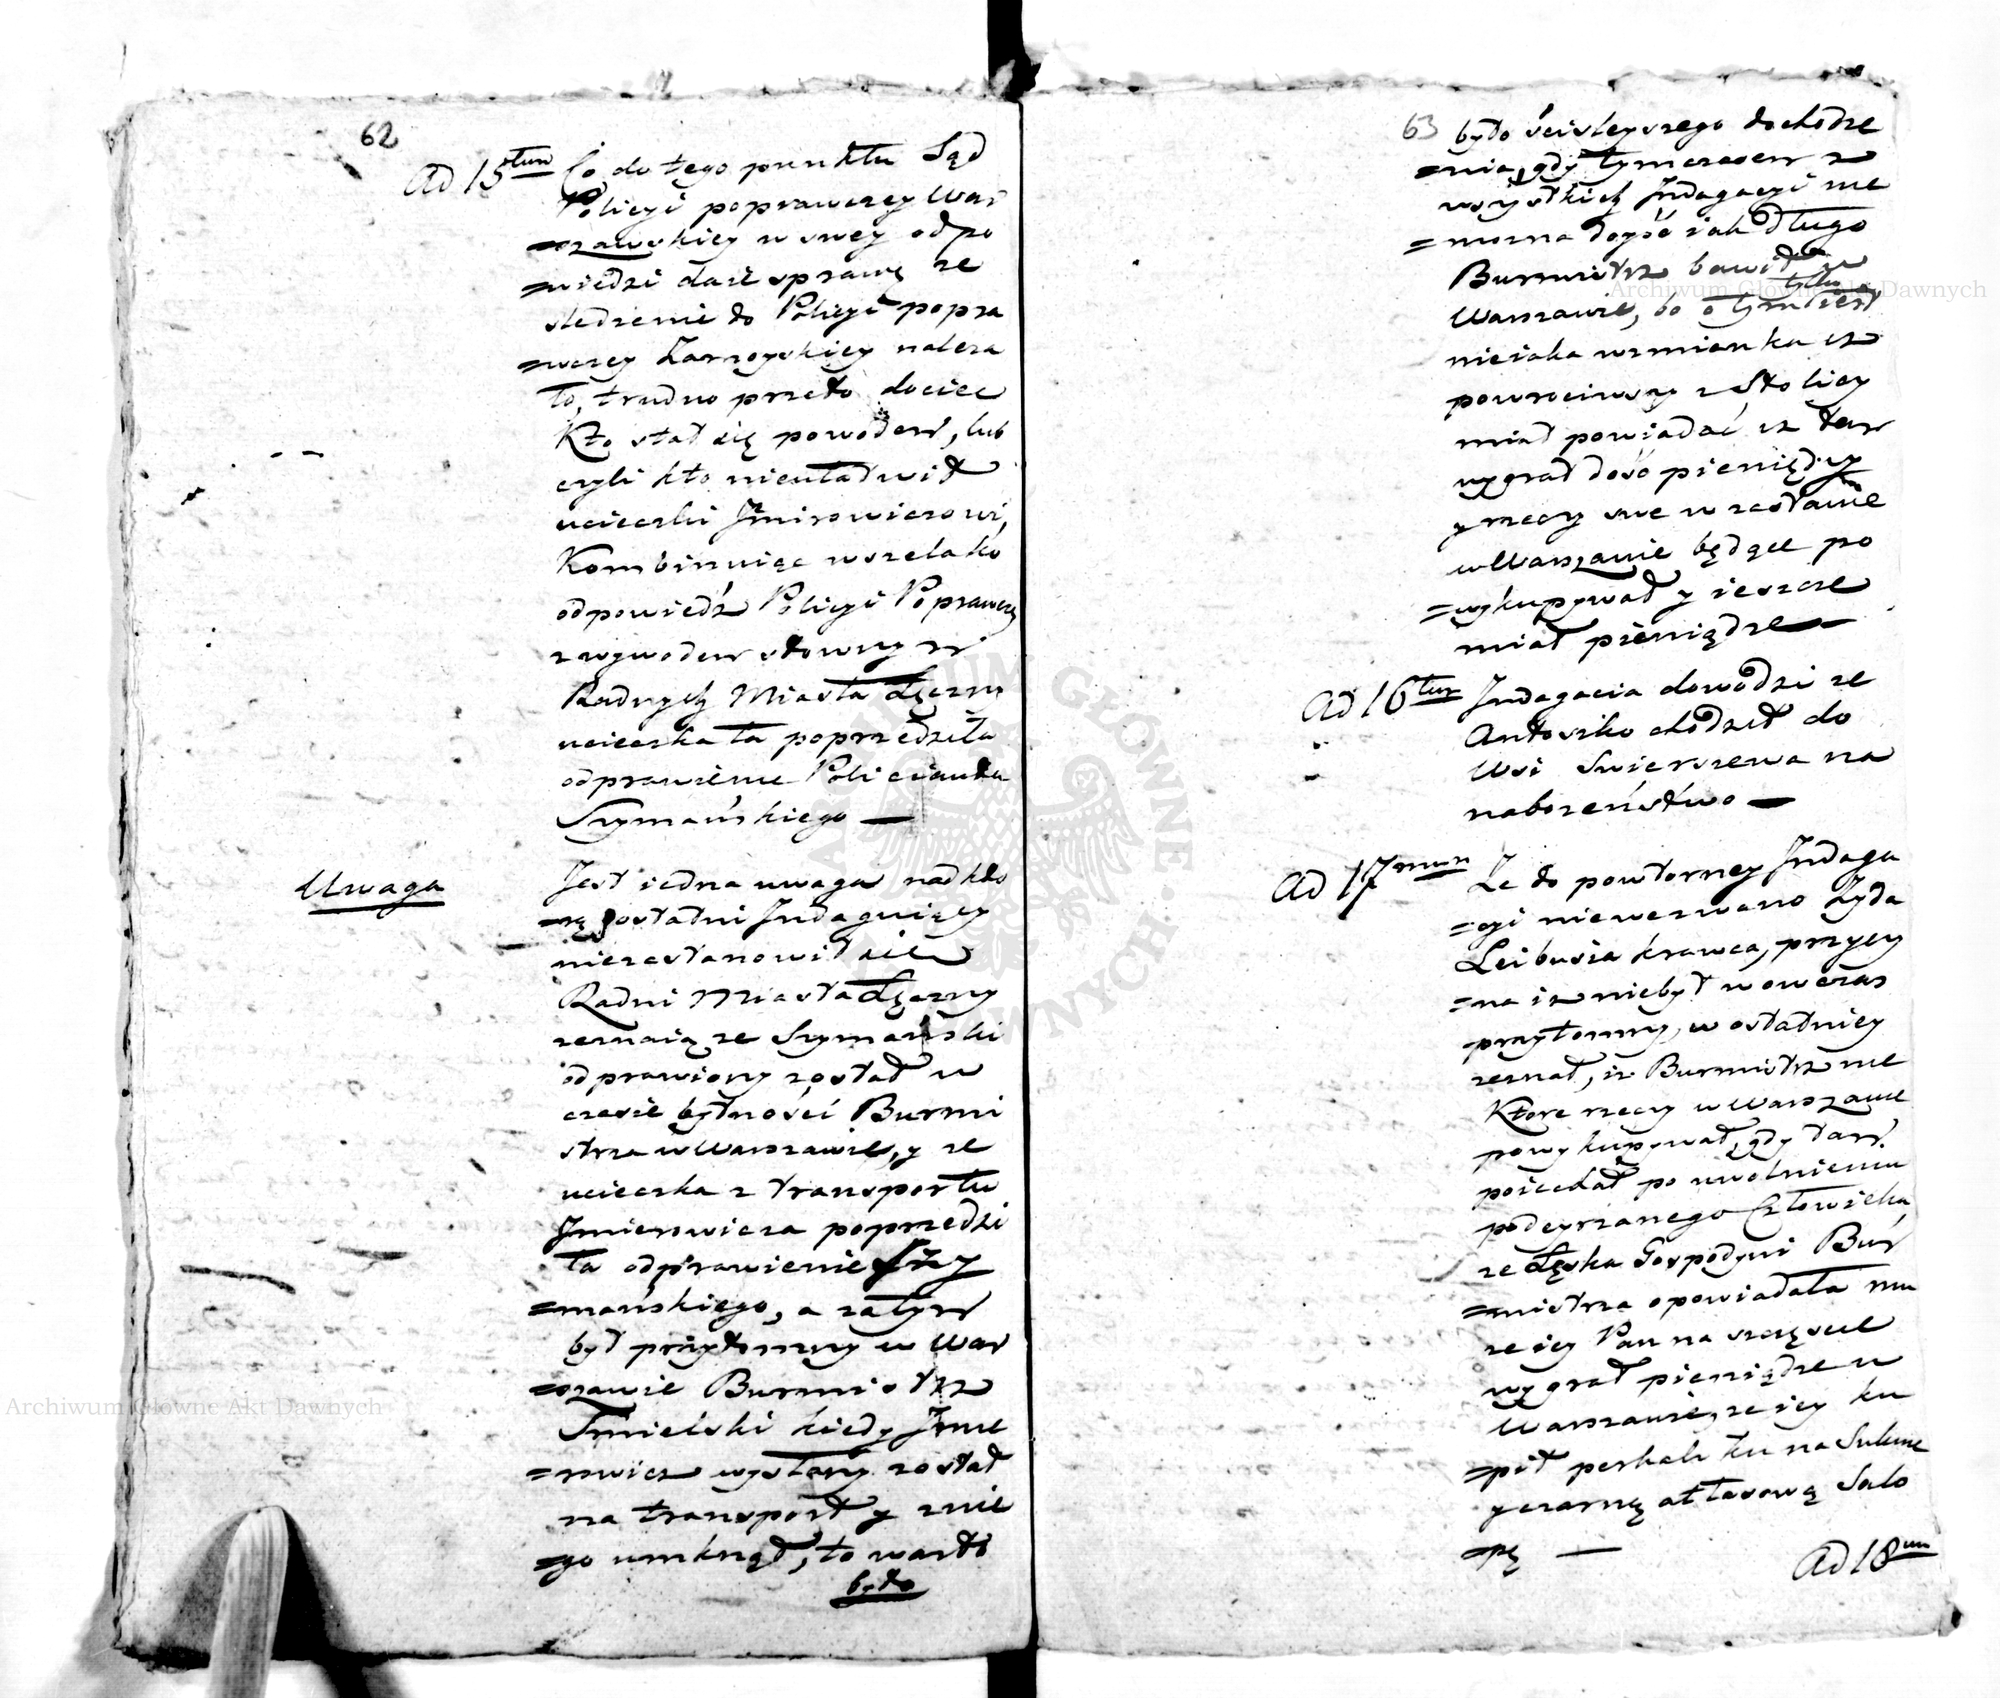 62
Ad 15tum Co do tego punktu Sąd
Policyi poprawczey War
=szawskiey w swey odpo
=wiedzi daie sprawę ze
śledzenie do Policyi popra
=wczey Zarzyskiey naleza
ło, trudno przeto dociec
Kto stał się powodem, lub
czyli kto nieułatwił
ucieczki Jmirowiczowi,
Kombinuiąc wszelako
odpowiedź Policyi Poprawczey
z wywodem słownym
Radnych Miasta Łęczny
ucieczka ta poprzedziła
odprawienie Policianta
Szymańskiego —
Uwaga
Jest iedna uwaga nad kto
=rą ostatni Indaguiący
niezastanowił się
Radni Miasta Łęczny
zeznaią ze Szymański
odprawiony został w
czasie bytności Burmi
strza w Warszawie, y ze
ucieczka z transportu
Jmierowicza poprzedzi
ła odprawienie Szy
=mańskiego, a zatym
był przytomny w War
=szawie Burmistrz
Smielski kiedy Jmie
=rowicz wysłany został
na transport y znie
=go umknął, to warto
było
63
było ściśleyszego dochodze
=nia, gdy tymczasem z
wszystkich Indagacyi nie
=mozna doyść iak długo
Burmistrz bawił w
Warszawie, bo o tym tylko iest
nieiaka wzmianka iż
powrociwszy z Stolicy
miał powiadać iż tam
wygrał dość pieniędzy
y rzeczy swe w zastawie
w Warszawie będące po
=wykupywał y ieszcze
miał pieniądze —
Ad 16tum Indagacia dowodzi ze
Antoszko chodził do
Wsi Swierszewa na
nabozeństwo —
Ad 17mum Ze do powtorney Indaga
=cyi niewezwano Zyda
Leibusia krawca, przyczy
=na iż niebył wowczas
przytomny, w ostatniey
zeznał, iż Burmistrz nie
Ktore rzeczy w Warszawie
powykupywał, gdy tam
poiechał po uwolnieniu
podeyrzanego Człowieka,
ze Łęska Gospodyni Bur
=mistrza opowiadała mu
ze iey Pan na szczęscie
wygrał pieniądze w
Warszawie, ze iey ku
=pił perkaliku na Suknie
y czarną atłasową Salo
=pę —
Ad 18um
Archiwum Główne Akt Dawnych
Archiwum Główne Akt Dawnych